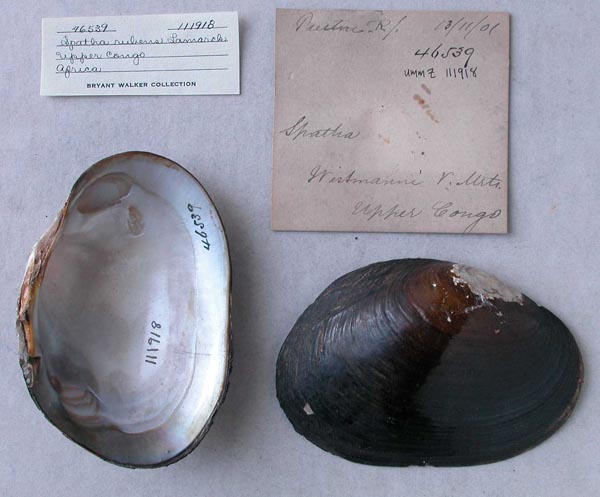 46539 111918
Spatha rubens Lamarck
Upper Congo
Africa
BRYANT WALKER COLLECTION
13/11/01
46539
UMMZ 111918
Spatha
V. Mrts.
Upper Congo
46539
111918